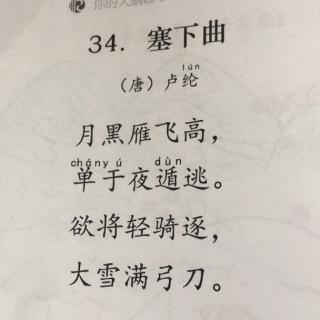 34. 塞下曲
lún
(唐) 卢纶
月黑雁飞高，
chány ú dùn
单于夜遁逃。
欲将轻骑逐，
大雪满弓刀。